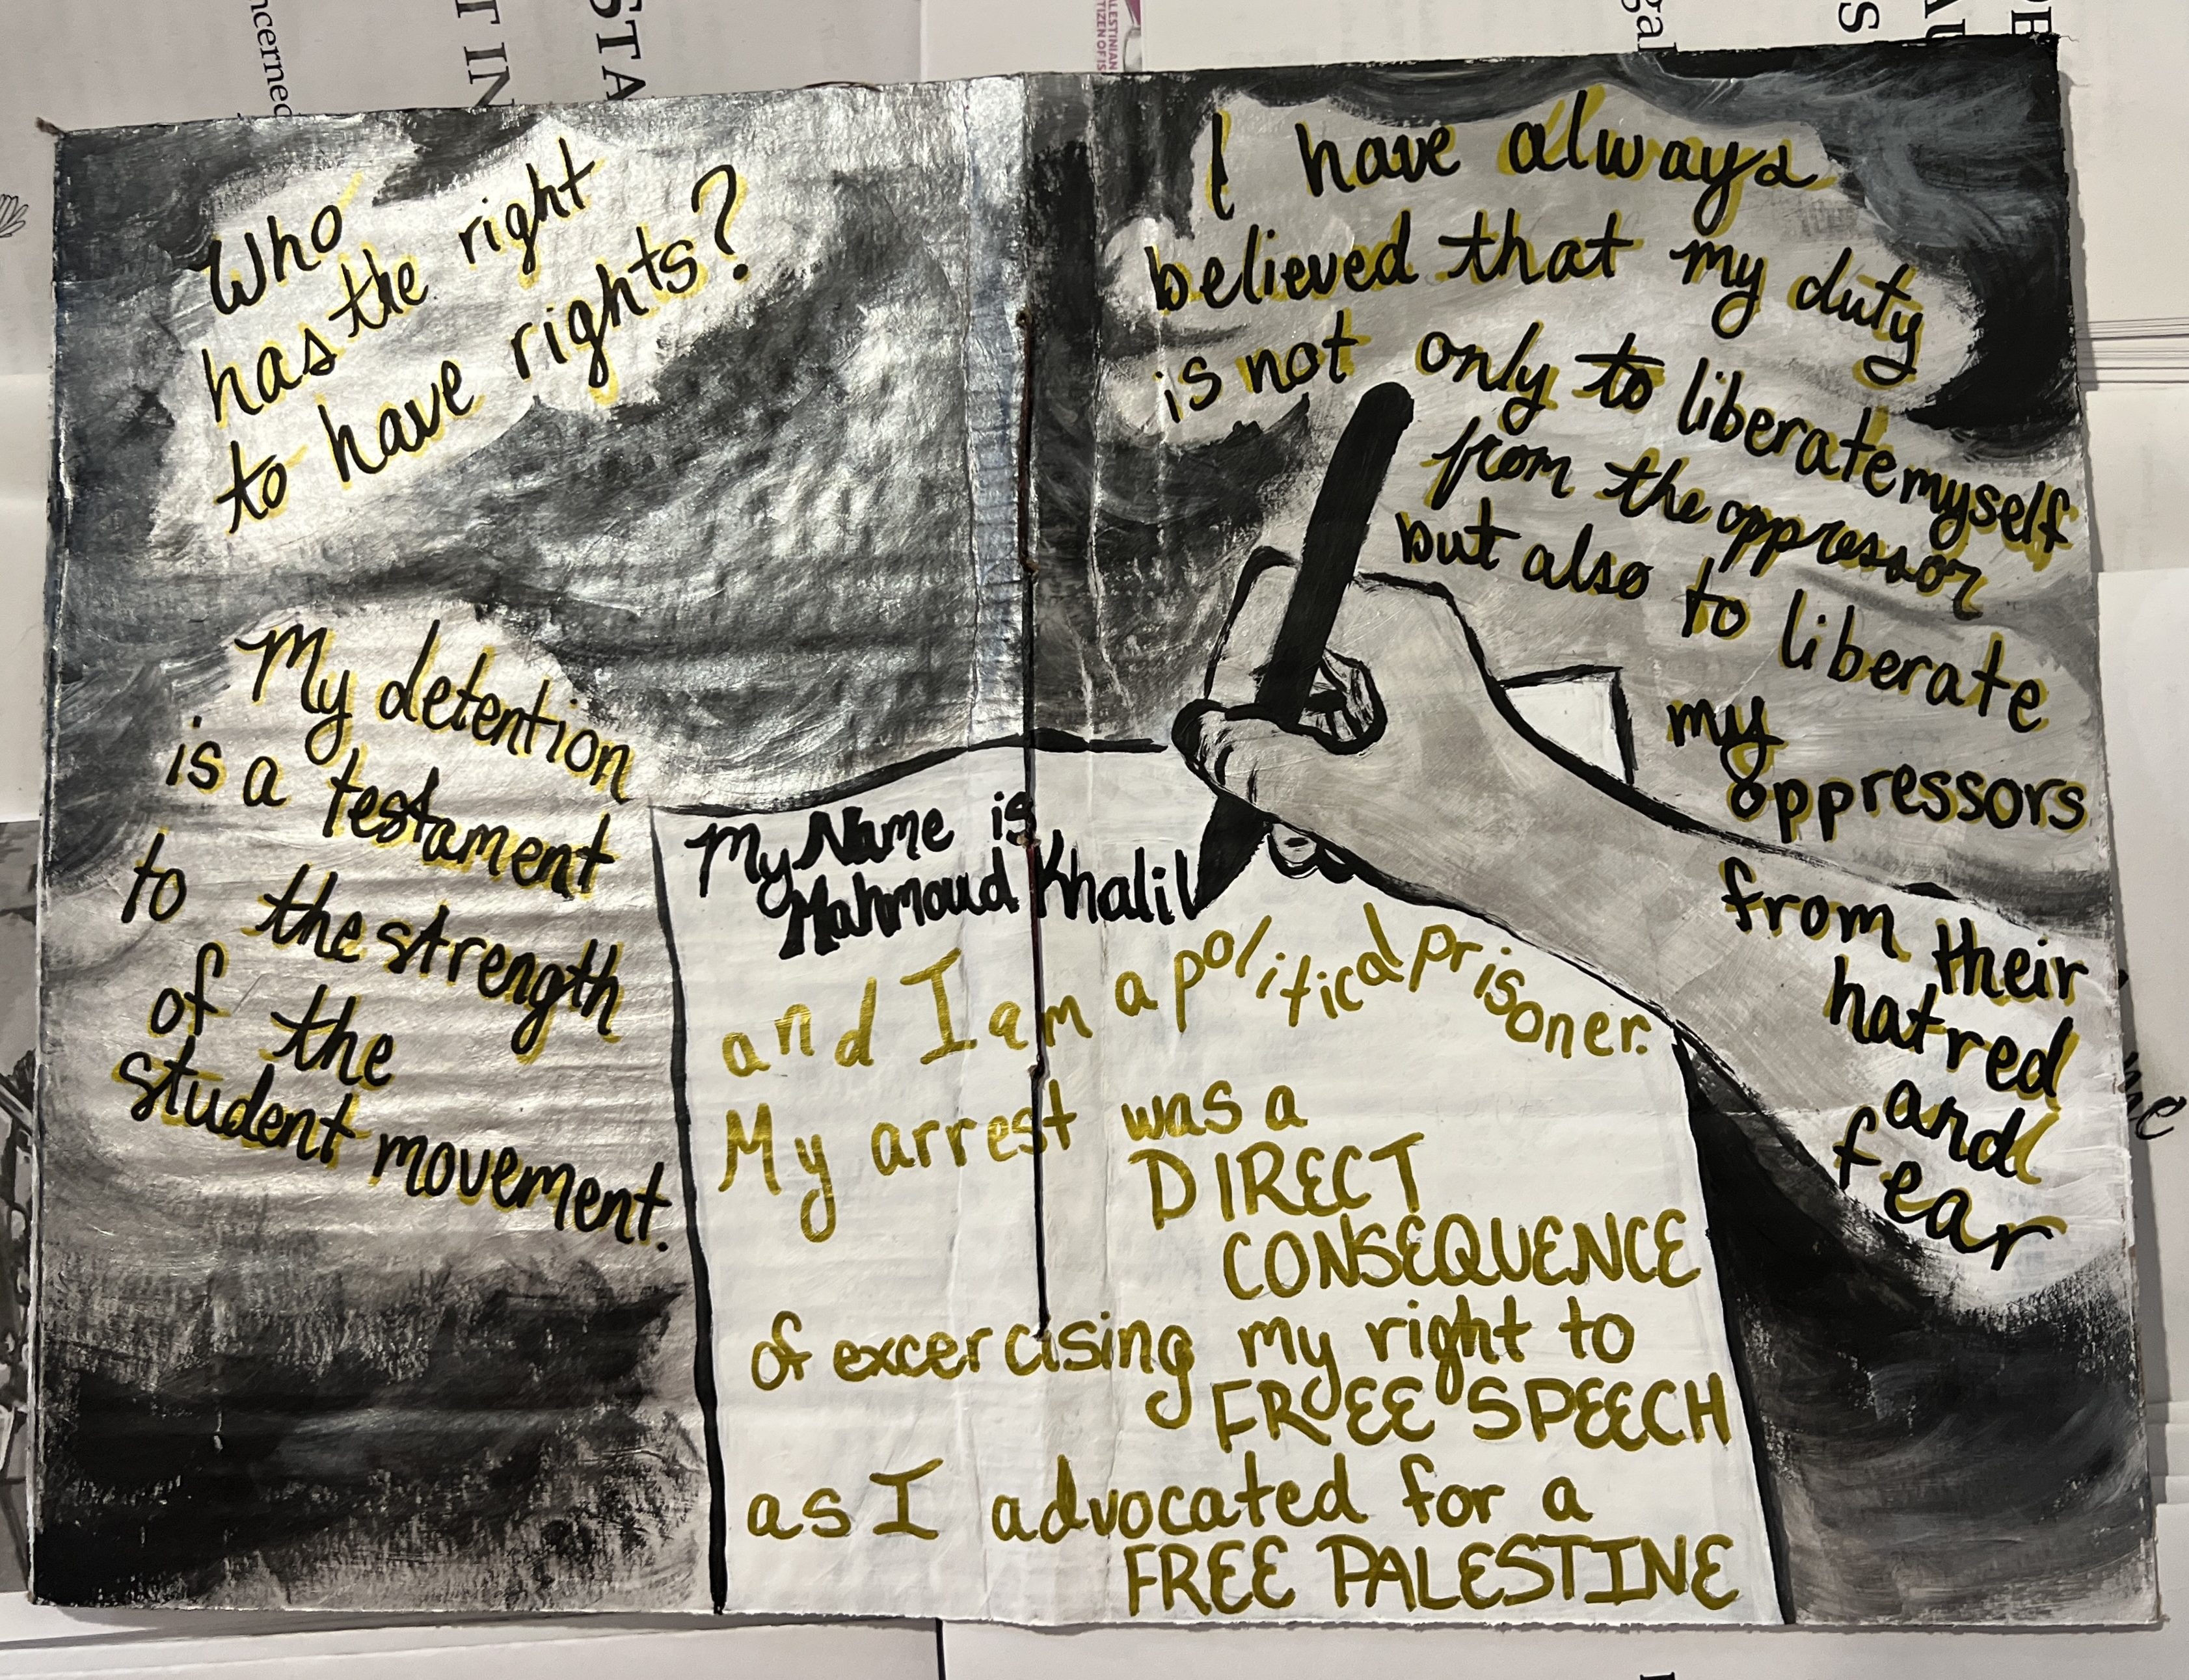 Who
has the right
to have rights?
My detention
is a testament
to the strength
of the
student movement.
I have always
believed that my duty
is not only to liberate myself
from the oppressor
but also to liberate
my
oppressors
from their
hatred
and
fear
My Name is
Mahmoud Khalil
and I am a political prisoner.
My arrest was a
DIRECT
CONSEQUENCE
of excercising my right to
FREE SPEECH
as I advocated for a
FREE PALESTINE
ncerned
T IN
STA
PALESTINIAN
TIZEN OF IS
gal
S
AU
PE
me